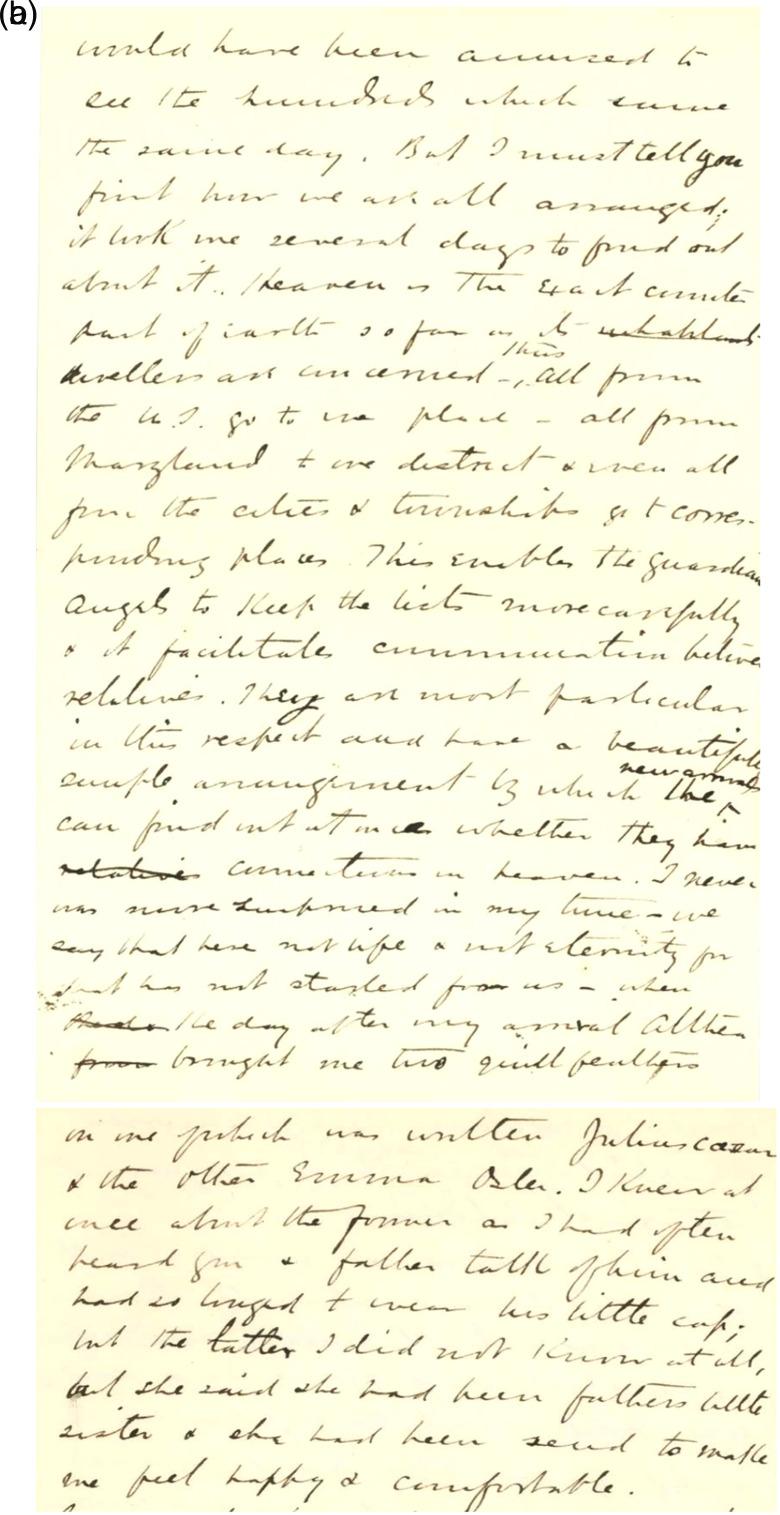 (a)
would have been amused to
see the hundreds which came
the same day. But I must tell you
first how we are all arranged;
it took me several days to find out
about it. Heaven is the exact counter
part of earth so far as its
dwellers are concerned -, thus all from
the U.S. go to one place - all from
Maryland to one district & even all
from the cities & townships get corres-
ponding places. This enables the guardian
angels to keep the lists more carefully
& it facilitates communication between
relatives. They are most particular
in this respect and have a beautifully
simple arrangement by which the new arrivals
can find out at once whether they have
relatives connections in heaven. I never
was more surprised in my time - we
say that here not life & not eternity for
that has not started for us - when
the day after my arrival Althea
from brought me two quill feathers
on one of which was written Julius Caesar
& the other Emma Osler. I knew at
once about the former as I had often
heard you & father talk of him and
had so longed to wear his little cap;
but the latter I did not know at all,
but she said she had been fathers little
sister & she had been send to make
me feel happy & comfortable.